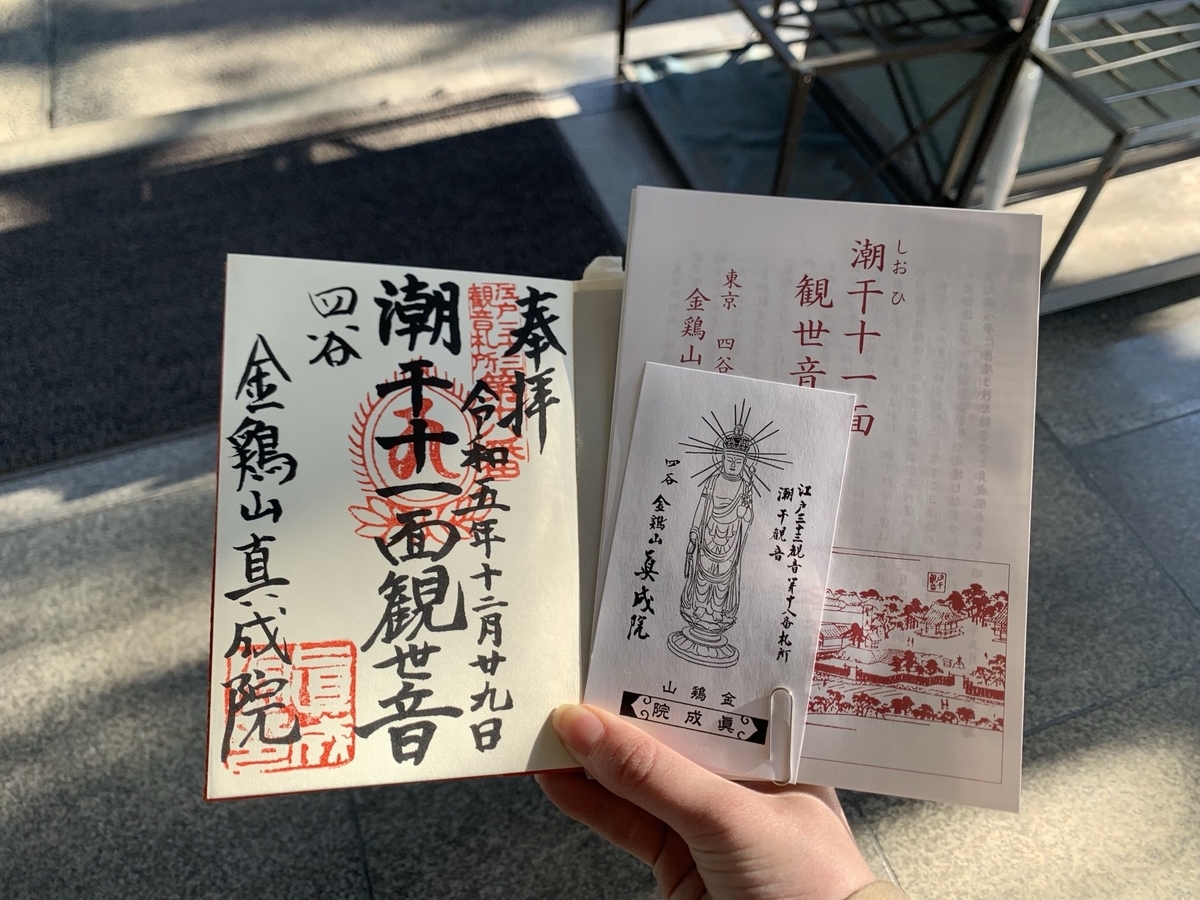 奉拝
江戸三十三
観音札所
令和五年十二月廿九日
潮干十一面観世音
四谷
金鶏山真成院
しおひ
潮干十一面
観世音
東京 四谷
金鶏山
江戸三十三観音第十八番札所
潮干観音
四谷 金鶏山 真成院
山鶏金
院成眞